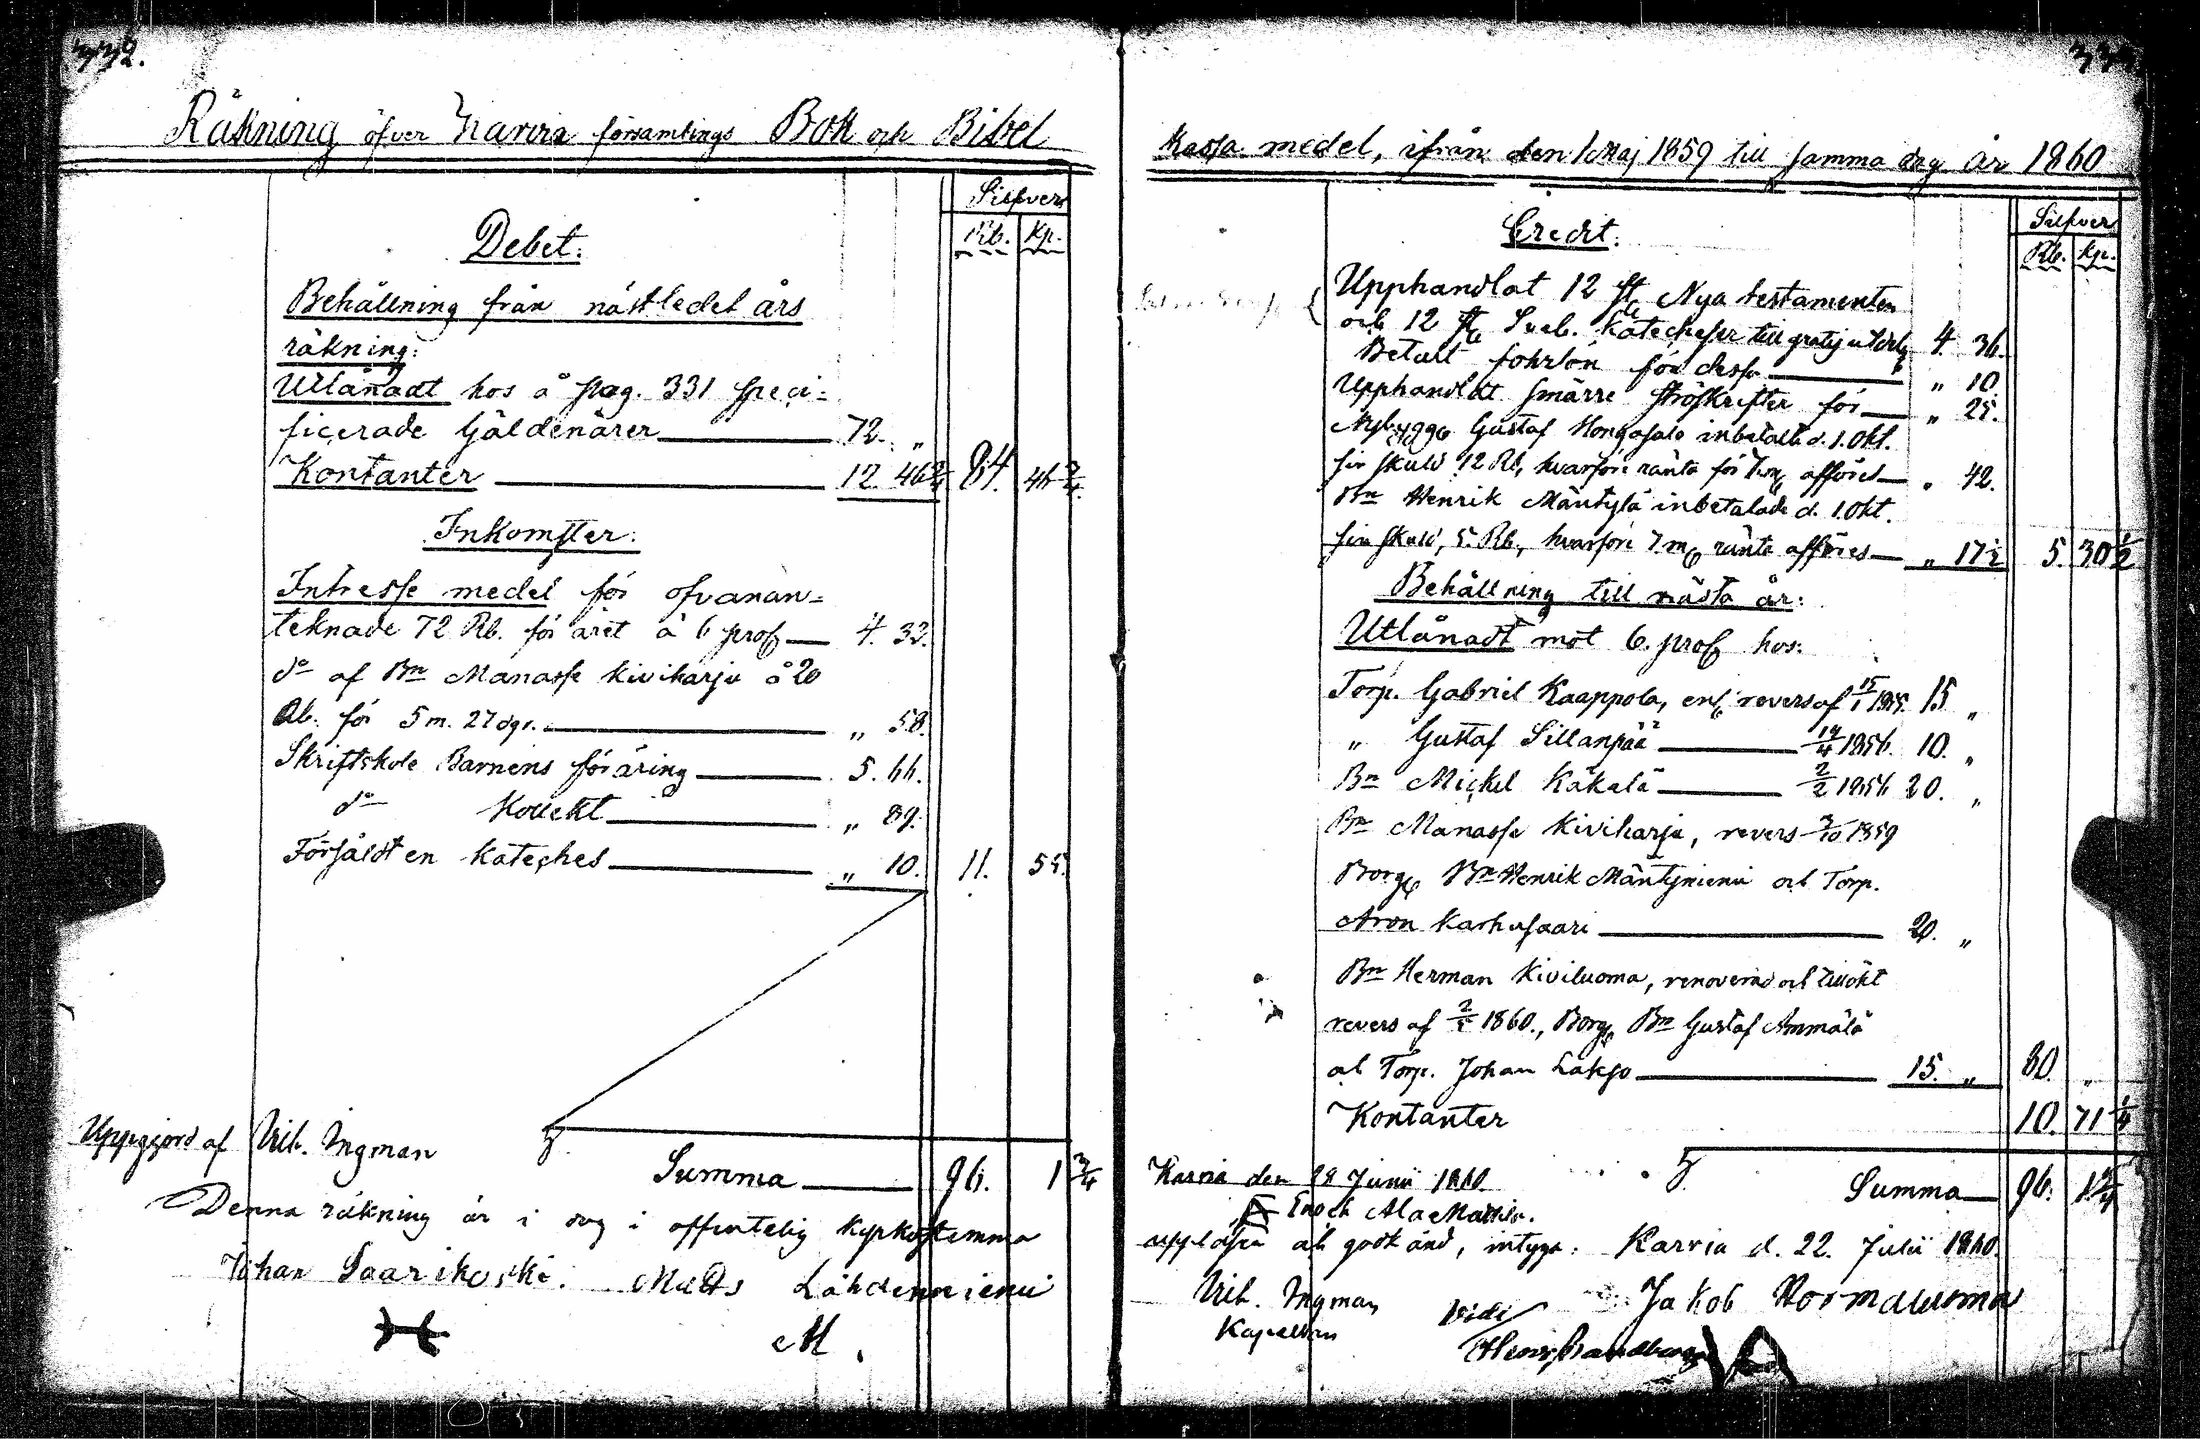 332.
Räkning öfver Karvia församlings Bok och Bibel
Silfver
Debet:
Rb. Kp.
Behållning från nästledet års
räkning:
Utlånadt hos å pag. 331 speci=
ficerade Gäldenärer 72. „
Kontanter 12 46 3/4 84. 46 3/4
Inkomster:
Intresse medel för ofvanan=
teknade 72 Rb. för året à 6 pros 4. 32.
do af Bn Manasse Kiviharju å 20
Rb. för 5 m. 27 dgr. „ 58.
Skriftskole Barnens föräring 5. 66.
do Kollekt „ 89.
Försåldt en Kateches „ 10. 11. 55.
Uppgjord af Vilh. Ingman
Summa 96. 1 3/4
Denna räkning är i dag i offentelig kyrkostemma
Johan Saarikoski. Matts Lähdenniemi
M.
333
Kassa medel, ifrån den 1 Maj 1859 till samma dag år 1860
Silfver
Credit:
Rb. Kp.
Upphandlat 12 st Nya testamenten
och 12 st Sv. Katecheser till gratis utdel 4. 36.
Betalt forlön för dessa „ 10.
Upphandlat smärre ströskrifter för „ 25.
Nybygg Gustaf Hongasalo inbetalt d. 1. Okt.
sin skuld 12 Rb, hvarföre ränta för 7 m afföres „ 42.
Bn Henrik Mäntylä inbetalade d. 1. Okt.
sin skuld, 5. Rb, hvarföre 7 m ränta afföres „ 17 1/2 5. 30 1/2
Behållning till nästa år:
Utlånadt mot 6. pros hos:
Torp. Gabriel Kaappola, enl. revers af 15/1 1855. 15 „
„ Gustaf Sillanpää 14/4 1856. 10. „
Bn Mickel Käkelä 2/2 1856 20. „
Bn Manasse Kiviharju, revers 3/10 1859
Borg Bn Henrik Mäntyniemi och Torp.
Aron Karhusaari 20. „
Bn Herman Kiviluoma, renoverad och tillökt
revers af 2/5 1860., Borg Bn Gustaf Ammälä
och Torp. Johan Lakjo 15. „ 80. „
Kontanter 10. 71 1/4
Summa 96. 1 3/4
Karvia den 29 Junii 1860.
Enoch Ala Mattila.
uppläsen och godkänd, intyga: Karvia d. 22. Julii 1860.
Vilh. Ingman Vidi Jakob Normaluoma
Kapellan